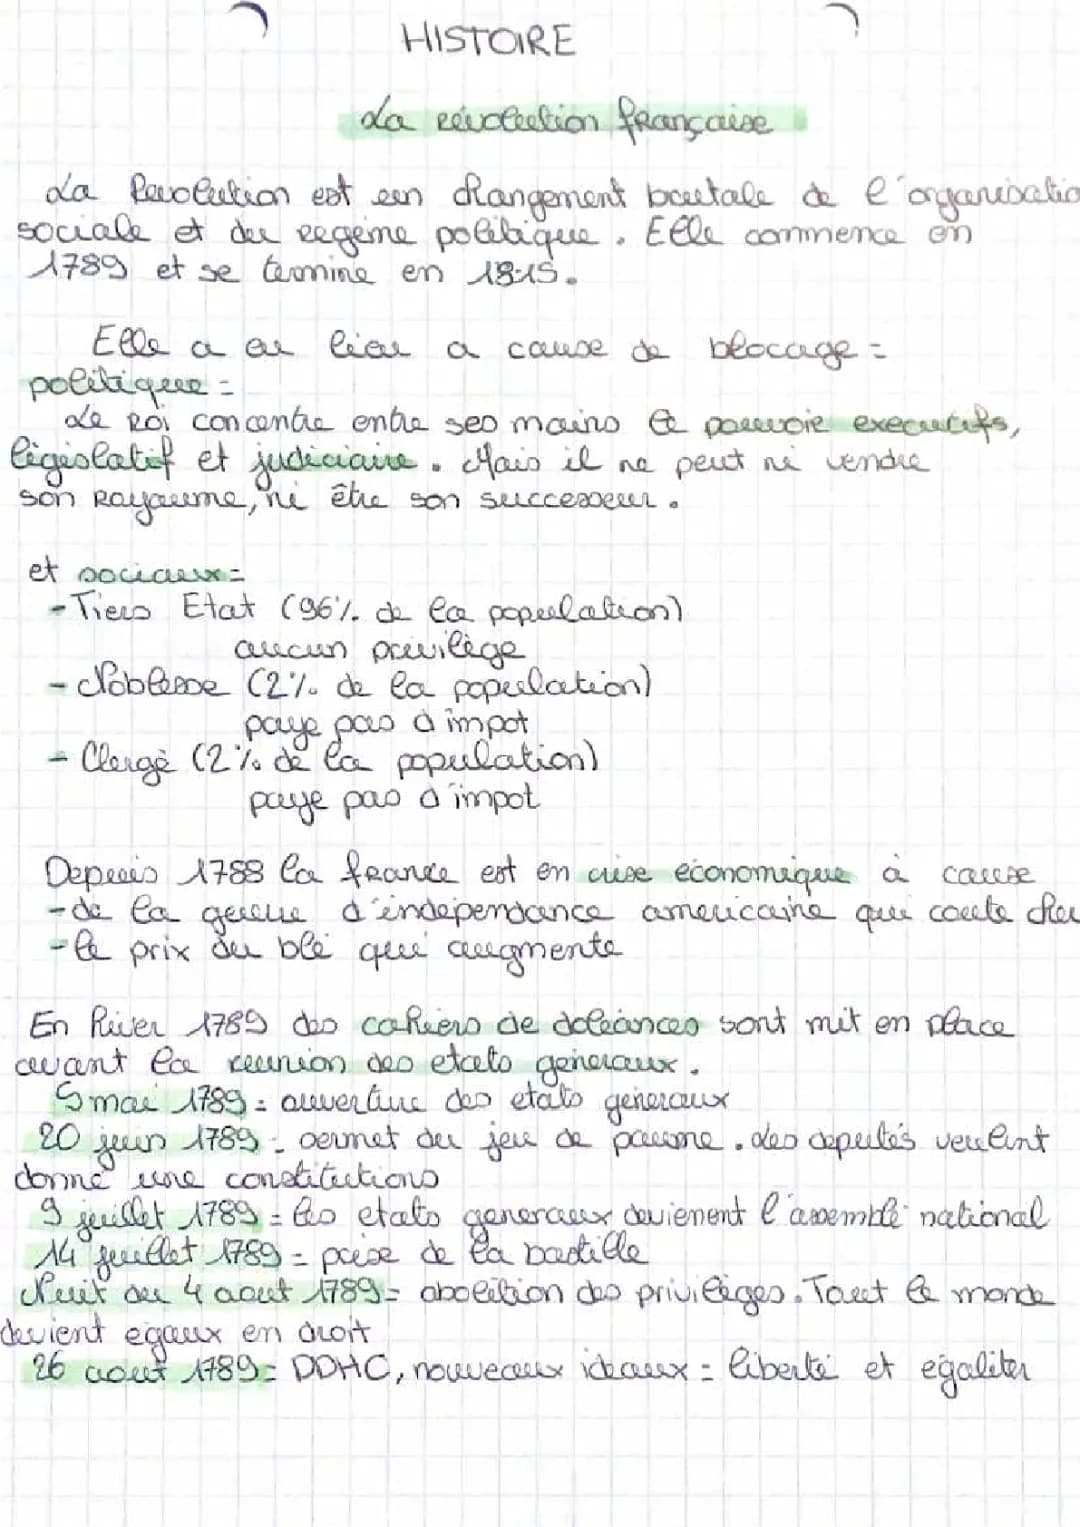 HISTOIRE
La révolution française
La Revolution est un changement brutale de l'organisatio
sociale et du regime politique. Elle commence en
1789 et se termine en 1815.
Elle a eu lieu a cause de blocage =
politique =
Le Roi concentre entre ses mains le pouvoir executifs,
législatif et judiciaire. Mais il ne peut ni vendre
son Royaume, ni être son successeur.
et sociaux =
- Tiers Etat (96% de la population)
aucun privilège
- Noblesse (2% de la population)
paye pas d'impot
- Clergé (2% de la population)
paye pas d'impot
Depuis 1788 la france est en crise économique à cause
- de la guerre d'independance americaine qui coute cher
- le prix du blé qui augmente
En hiver 1789 des cahiers de doléances sont mit en place
avant la reunion des etats generaux.
5 mai 1789 = ouverture des etats generaux
20 juin 1789 = serment du jeu de paume. des deputés veulent
donné une constitutions
9 juillet 1789 = les etats generaux devienent l'assemblé national
14 juillet 1789 = prise de la bastille
Nuit du 4 aout 1789 = abolition des privilèges. Tout le monde
devient egaux en droit
26 aout 1789 = DDHC, nouveaux ideaux = liberté et egaliter